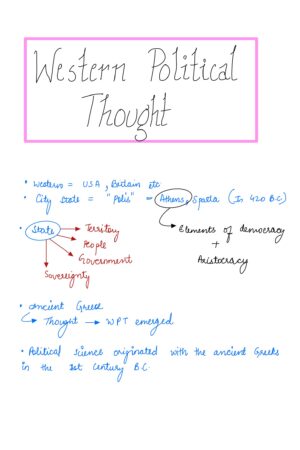 Western Political
Thought
• Western = U.S.A, Britain etc
• City State = "Polis" = Athens, Sparta (In 420 B.C)
→ Elements of democracy
+
Aristocracy
• State → Territory
→ People
→ Government
→ Sovereignty
• Ancient Greece
→ Thought → WPT emerged
• Political science originated with the ancient Greeks
in the 1st Century B.C.